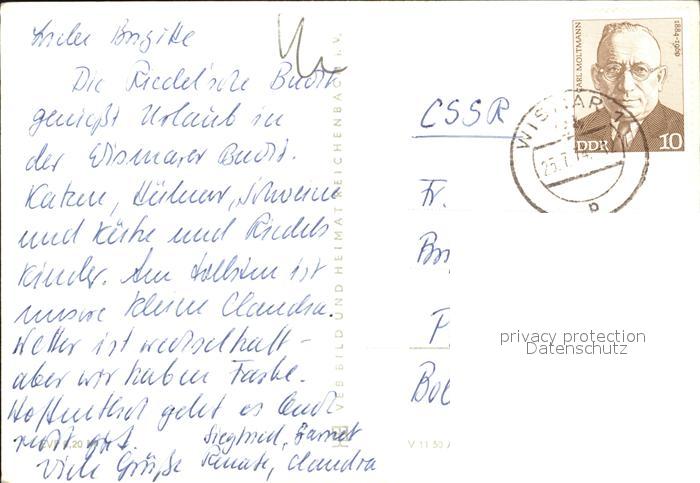 Liebe Brigitte
Die Riedel'sche
genießt Urlaub in
der Wismarer
Katzen, Hühner, Schweine
und Kühe und Riedels
Kinder. Am tollsten ist
unsere kleine Claudia.
Wetter ist wechselhaft -
aber wir haben Farbe.
Hoffentlich geht es Euch
recht gut. Siegfried,
Viele Grüße Renate, Claudia
VEB BILD UND HEIMAT REICHENBACH i. V.
V 11 50
CSSR
Fr.
KARL MOLTMANN
1884-1960
DDR 10
WISMAR 1
25.7.74
privacy protection
Datenschutz